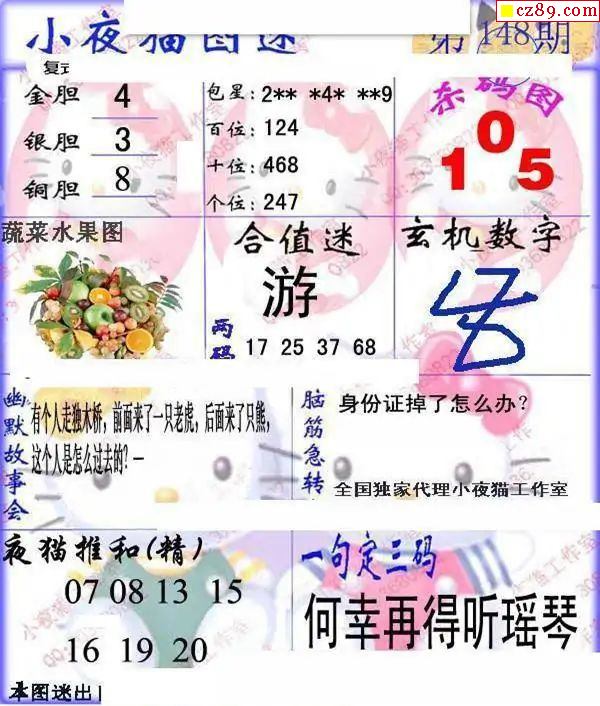 cz89.com
小夜猫图迷 第148期
复式
金胆 4
银胆 3
铜胆 8
包星:2** *4* **9
百位:124
十位:468
个位:247
杀码图
105
蔬菜水果图
合值迷
游
两码
17 25 37 68
玄机数字
幽默故事会
有个人走独木桥，前面来了一只老虎，后面来了只熊，
这个人是怎么过去的？一
脑筋急转
身份证掉了怎么办？
全国独家代理小夜猫工作室
夜猫推和(精)
07 08 13 15
16 19 20
一句定三码
何幸再得听瑶琴
本图迷出